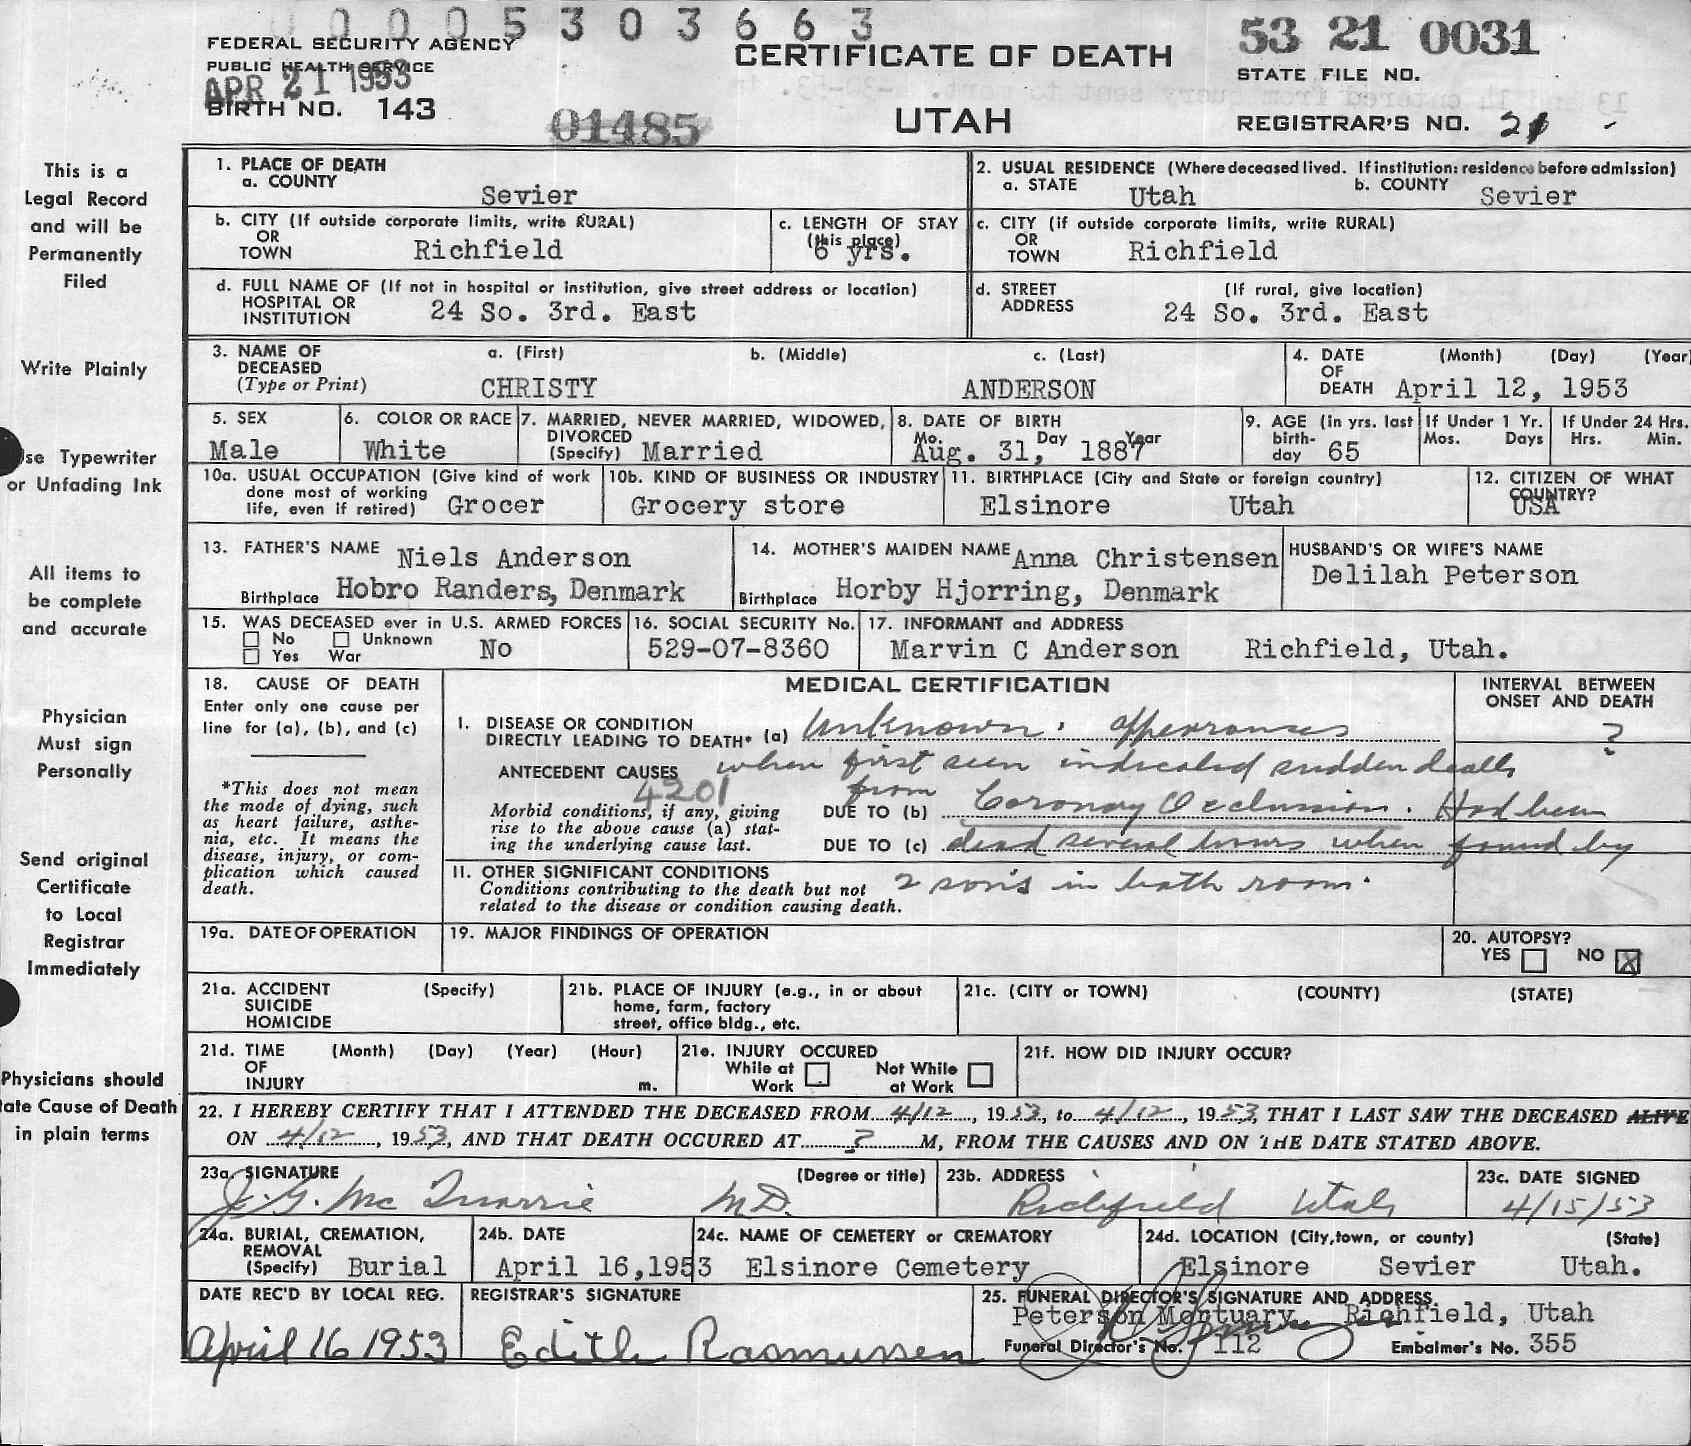 0005303663
FEDERAL SECURITY AGENCY
PUBLIC HEALTH SERVICE
APR 21 1953
BIRTH NO. 143
01485
CERTIFICATE OF DEATH
UTAH
53 21 0031
STATE FILE NO.
REGISTRAR'S NO. 21
This is a
Legal Record
and will be
Permanently
Filed
Write Plainly
se Typewriter
or Unfading Ink
All items to
be complete
and accurate
Physician
Must sign
Personally
Send original
Certificate
to Local
Registrar
Immediately
Physicians should
tate Cause of Death
in plain terms
1. PLACE OF DEATH
a. COUNTY
Sevier
2. USUAL RESIDENCE (Where deceased lived. If institution: residence before admission)
a. STATE Utah b. COUNTY Sevier
b. CITY (If outside corporate limits, write RURAL)
OR
TOWN Richfield
c. LENGTH OF STAY
(this place)
6 yrs.
c. CITY (if outside corporate limits, write RURAL)
OR
TOWN Richfield
d. FULL NAME OF (If not in hospital or institution, give street address or location)
HOSPITAL OR
INSTITUTION 24 So. 3rd. East
d. STREET (If rural, give location)
ADDRESS 24 So. 3rd. East
3. NAME OF
DECEASED
(Type or Print)
a. (First) b. (Middle) c. (Last)
CHRISTY ANDERSON
4. DATE (Month) (Day) (Year)
OF
DEATH April 12, 1953
5. SEX
Male
6. COLOR OR RACE
White
7. MARRIED, NEVER MARRIED, WIDOWED,
DIVORCED
(Specify) Married
8. DATE OF BIRTH
Mo. Day Year
Aug. 31, 1887
9. AGE (in yrs. last
birth-
day 65
If Under 1 Yr.
Mos. Days
If Under 24 Hrs.
Hrs. Min.
10a. USUAL OCCUPATION (Give kind of work
done most of working
life, even if retired) Grocer
10b. KIND OF BUSINESS OR INDUSTRY
Grocery store
11. BIRTHPLACE (City and State or foreign country)
Elsinore Utah
12. CITIZEN OF WHAT
COUNTRY?
USA
13. FATHER'S NAME Niels Anderson
Birthplace Hobro Randers, Denmark
14. MOTHER'S MAIDEN NAME Anna Christensen
Birthplace Horby Hjorring, Denmark
HUSBAND'S OR WIFE'S NAME
Delilah Peterson
15. WAS DECEASED ever in U.S. ARMED FORCES
No Unknown
Yes War No
16. SOCIAL SECURITY No.
529-07-8360
17. INFORMANT and ADDRESS
Marvin C Anderson Richfield, Utah.
18. CAUSE OF DEATH
Enter only one cause per
line for (a), (b), and (c)
*This does not mean
the mode of dying, such
as heart failure, asthe-
nia, etc. It means the
disease, injury, or com-
plication which caused
death.
MEDICAL CERTIFICATION
INTERVAL BETWEEN
ONSET AND DEATH
?
I. DISEASE OR CONDITION
DIRECTLY LEADING TO DEATH* (a) Unknown. appearances
ANTECEDENT CAUSES when first seen indicated sudden death
4201
from
Morbid conditions, if any, giving
rise to the above cause (a) stat-
ing the underlying cause last.
DUE TO (b) Coronary Occlusion. Had been
DUE TO (c) dead several hours when found by
II. OTHER SIGNIFICANT CONDITIONS
Conditions contributing to the death but not
related to the disease or condition causing death.
2 sons in bath room.
19a. DATE OF OPERATION
19. MAJOR FINDINGS OF OPERATION
20. AUTOPSY?
YES NO X
21a. ACCIDENT (Specify)
SUICIDE
HOMICIDE
21b. PLACE OF INJURY (e.g., in or about
home, farm, factory
street, office bldg., etc.
21c. (CITY or TOWN) (COUNTY) (STATE)
21d. TIME (Month) (Day) (Year) (Hour)
OF
INJURY m.
21e. INJURY OCCURED
While at Work Not While at Work
21f. HOW DID INJURY OCCUR?
22. I HEREBY CERTIFY THAT I ATTENDED THE DECEASED FROM 4/12, 1953, to 4/12, 1953, THAT I LAST SAW THE DECEASED ALIVE
ON 4/12, 1953, AND THAT DEATH OCCURED AT ? M, FROM THE CAUSES AND ON THE DATE STATED ABOVE.
23a. SIGNATURE (Degree or title)
J. G. McQuarrie M.D.
23b. ADDRESS
Richfield Utah
23c. DATE SIGNED
4/15/53
24a. BURIAL, CREMATION,
REMOVAL
(Specify) Burial
24b. DATE
April 16,1953
24c. NAME OF CEMETERY or CREMATORY
Elsinore Cemetery
24d. LOCATION (City, town, or county) (State)
Elsinore Sevier Utah.
DATE REC'D BY LOCAL REG.
April 16 1953
REGISTRAR'S SIGNATURE
Edith Rasmussen
25. FUNERAL DIRECTOR'S SIGNATURE AND ADDRESS
Peterson Mortuary Richfield, Utah
Funeral Director's No. 112 Embalmer's No. 355